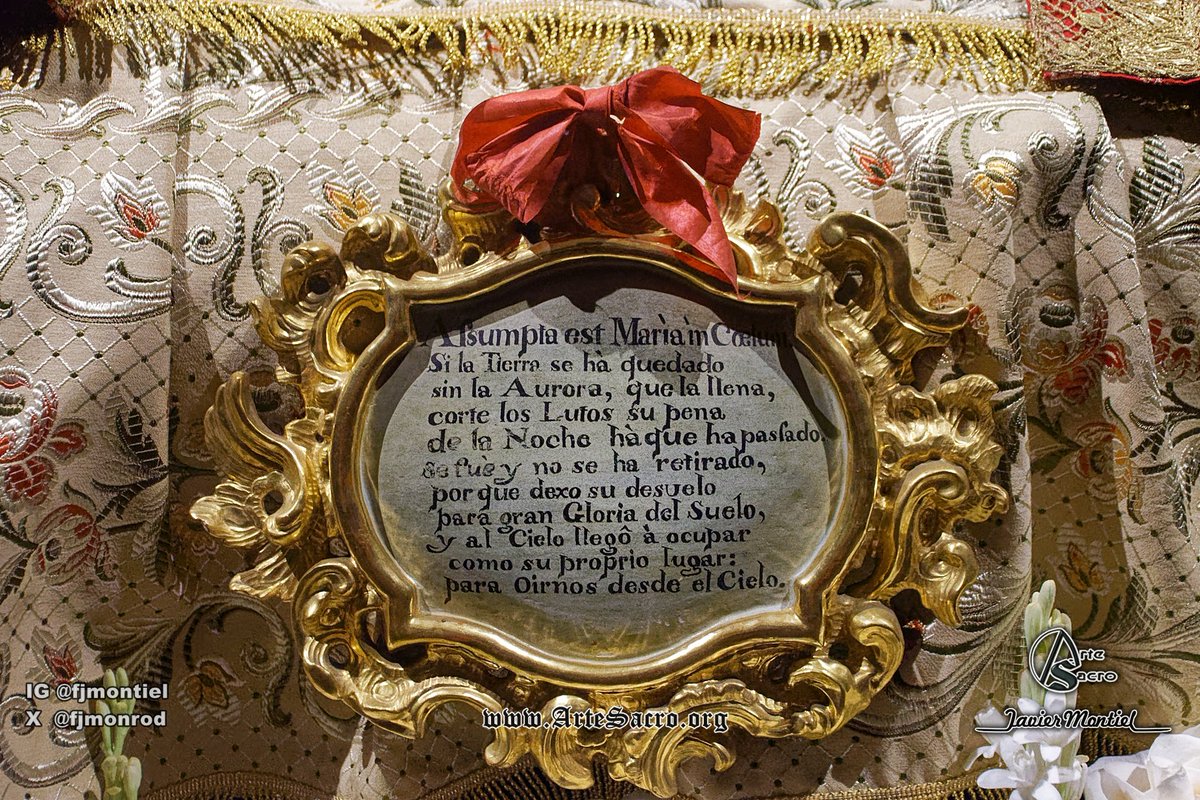 Aſsumpta est Marìa ìn Cœlum.
Si la Tierra se hà quedado
sin la Aurora, que la llena,
corte los Lutos su pena
de la Noche hà que ha paſsado.
Se fuè y no se ha retirado,
por que dexo su desvelo
para gran Gloria del Suelo,
y al Cielo llegó à ocupar
como su proprio lugar:
para Oirnos desde el Cielo.
IG @fjmontiel
X @fjmonrod
www.ArteSacro.org
Arte
Sacro
Javier Montiel